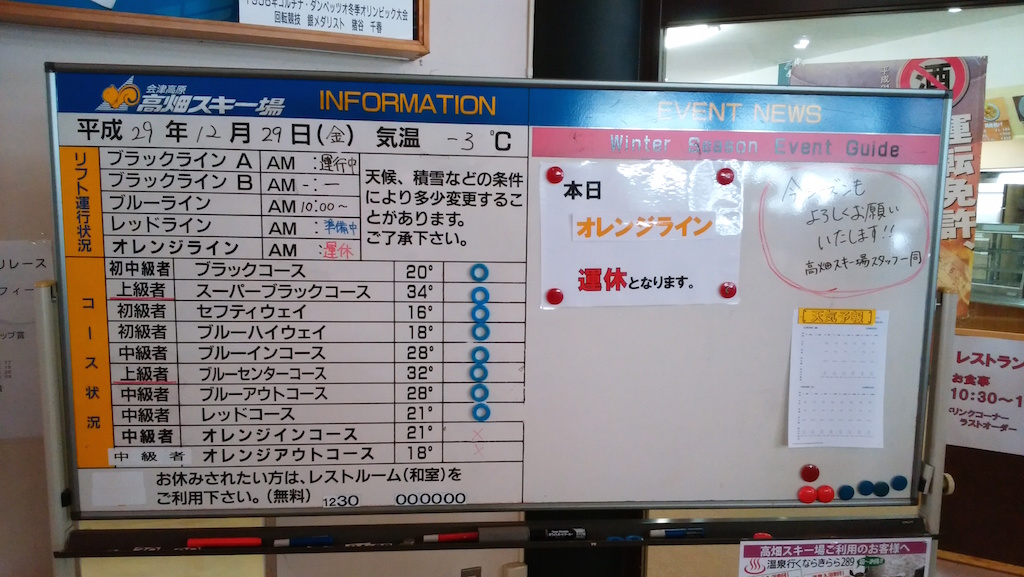 1956コルチナ・ダンペッツオ冬季オリンピック大会
回転競技 銀メダリスト 猪谷 千春
会津高原
高畑スキー場 INFORMATION
平成 29 年 12 月 29 日(金) 気温 -3 ℃
リフト運行状況
ブラックライン A AM :運行中
ブラックライン B AM -:-
ブルーライン AM 10:00~
レッドライン AM :準備中
オレンジライン AM :運休
天候、積雪などの条件
により多少変更するこ
とがあります。
ご了承下さい。
コース状況
初中級者 ブラックコース 20° ○
上級者 スーパーブラックコース 34° ○
初級者 セフティウェイ 16° ○
初級者 ブルーハイウェイ 18° ○
中級者 ブルーインコース 28° ○
上級者 ブルーセンターコース 32° ○
中級者 ブルーアウトコース 28° ○
中級者 レッドコース 21° ○
中級者 オレンジインコース 21° ×
中級者 オレンジアウトコース 18° ×
お休みされたい方は、レストルーム(和室)を
ご利用下さい。(無料) 1230 000000
EVENT NEWS
Winter Season Event Guide
本日
オレンジライン
運休となります。
よろしくお願い
いたします!!
高畑スキー場スタッフ一同
天気予報
酒
運転免許、
レストラン
お食事
10:30~1
ドリンクコーナー
ラストオーダー
高畑スキー場ご利用のお客様へ
温泉行くならきらら289